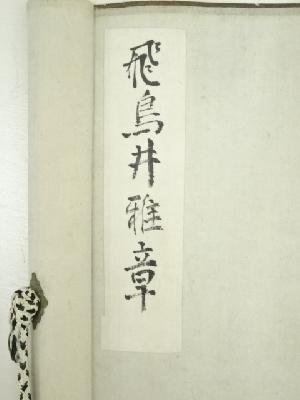 飛鳥井雅章